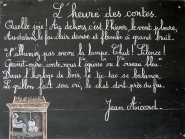 L'heure des contes.
Quelle joie! Au dehors, c'est l'hiver, le vent pleure,
Au dedans, le feu clair danse et flambe à grand bruit.
"N'allumez pas encore la lampe. Chut! Silence!
Grand-mère, conte-nous l'histoire "
Dans l'horloge de bois, le tic-tac se balance,
Le grillon fait son cri, le chat dort près du feu.
Jean Aicard.